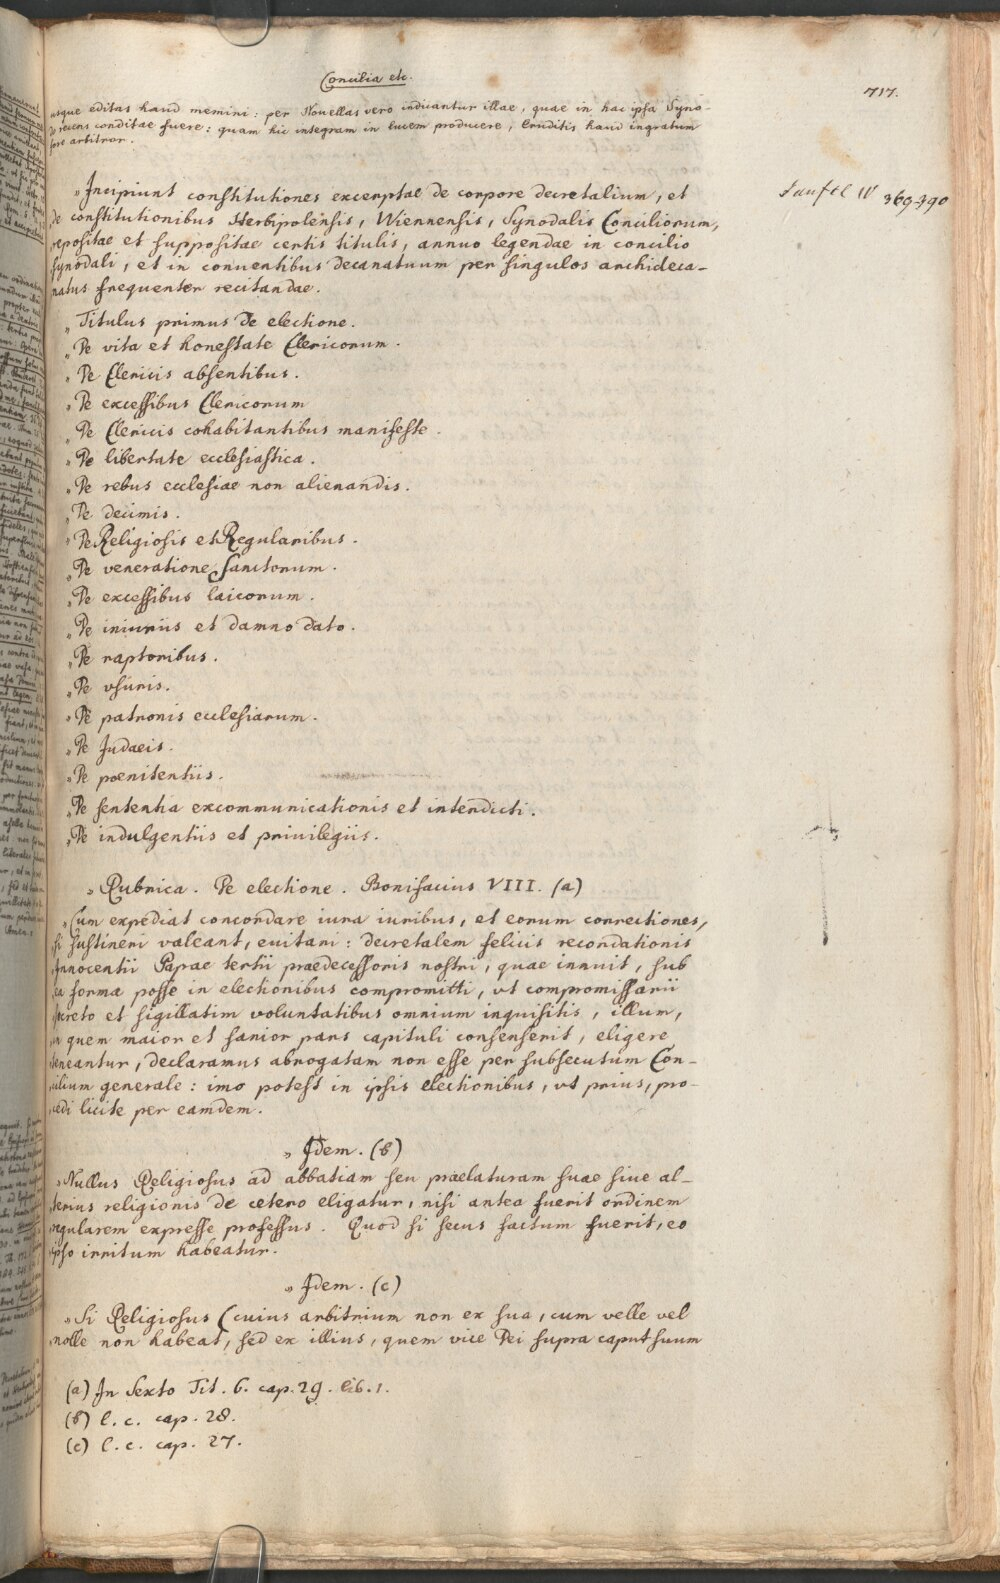 Concilia etc.
717.
usque editas haud memini: per Novellas vero indicantur illae, quae in hac ipsa Syno-
do recens conditae fuere: quam hic integram in lucem producere, Eruditis haud ingratum
fore arbitror.
Hansitz IV 369-390
„Incipiunt constitutiones excerptae de corpore decretalium, et
de constitutionibus Herbipolensis, Wiennensis, Synodalis Conciliorum,
repositae et suppositae certis titulis, annuo legendae in concilio
synodali, et in conventibus decanatuum per singulos archideca-
natus frequenter recitandae.
„Titulus primus de electione.
„De vita et honestate Clericorum.
„De Clericis absentibus.
„De excessibus Clericorum
„De Clericis cohabitantibus manifeste.
„De libertate ecclesiastica.
„De rebus ecclesiae non alienandis.
„De decimis.
„De Religiosis et Regularibus.
„De veneratione Sanctorum.
„De excessibus laicorum.
„De iniuriis et damno dato.
„De raptoribus.
„De vsuris.
„De patronis ecclesiarum.
„De Judaeis.
„De poenitentiis.
„De sententia excommunicationis et interdicti.
„De indulgentiis et privilegiis.
„Rubrica. De electione. Bonifacius VIII. (a)
„Cum expediat concordare iura iuribus, et eorum correctiones,
si sustineri valeant, euitari: decretalem felicis recordationis
Innocentii Papae tertii praedecessoris nostri, quae innuit, sub
ea forma posse in electionibus compromitti, vt compromissarii
secreto et sigillatim voluntatibus omnium inquisitis, illum,
in quem maior et sanior pars capituli consenserit, eligere
teneantur, declaramus abrogatam non esse per subsecutum Con-
cilium generale: imo potest in ipsis electionibus, vt prius, pro-
cedi licite per eamdem.
„Idem. (b)
„Nullus Religiosus ad abbatiam seu praelaturam suae siue al-
terius religionis de cetero eligatur, nisi antea fuerit ordinem
regularem expresse professus. Quod si secus factum fuerit, eo
ipso irritum habeatur.
„Idem. (c)
„Si Religiosus (cuius arbitrium non ex sua, cum velle vel
nolle non habeat, sed ex illius, quem vice Dei supra caput suum
(a) In Sexto Tit. 6. cap. 29. lib. 1.
(b) l. c. cap. 28.
(c) l. c. cap. 27.